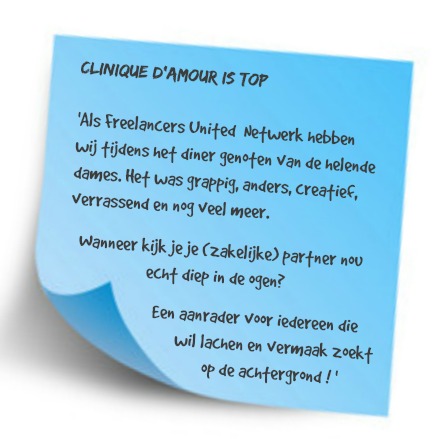 CLINIQUE D'AMOUR IS TOP
'Als Freelancers United Netwerk hebben
wij tijdens het diner genoten van de helende
dames. Het was grappig, anders, creatief,
verrassend en nog veel meer.
Wanneer kijk je je (zakelijke) partner nou
echt diep in de ogen?
Een aanrader voor iedereen die
wil lachen en vermaak zoekt
op de achtergrond!'